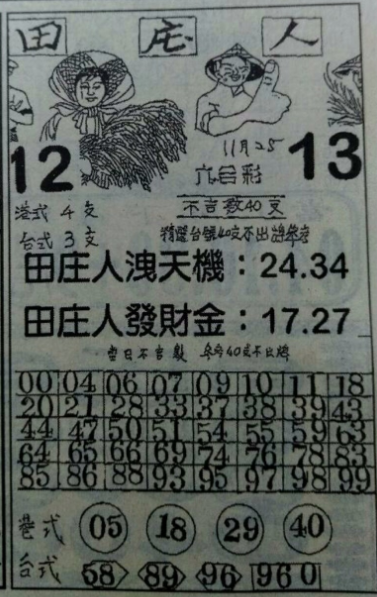 田 庄 人
11月25
12 六合彩 13
港式 4支
不言数40支
台式 3支
精選台號40支不出牌
田庄人洩天機：24.34
田庄人發財金：17.27
40支不出牌
00 04 06 07 09 10 11 18
20 21 28 33 37 38 39 43
44 47 50 51 54 55 59 63
64 65 66 69 74 76 78 83
85 86 88 93 95 97 98 99
港式 05 18 29 40
台式 58 89 96 960